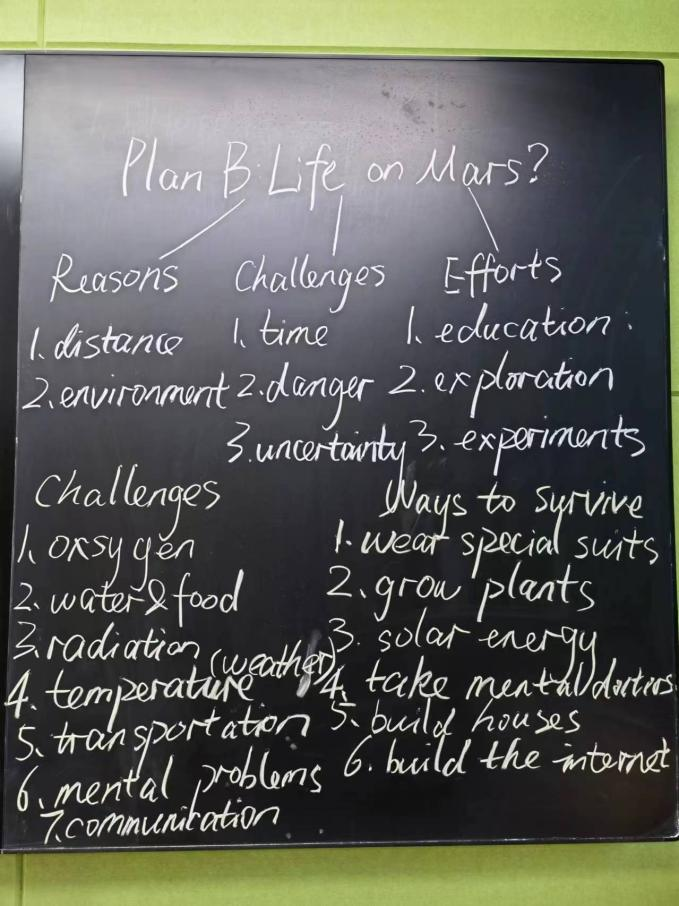 Plan B: Life on Mars?
Reasons
1. distance
2. environment
Challenges
1. time
2. danger
3. uncertainty
Efforts
1. education
2. exploration
3. experiments
Challenges
1. oxsygen
2. water & food
3. radiation
4. temperature (weather)
5. transportation
6. mental problems
7. communication
Ways to survive
1. wear special suits
2. grow plants
3. solar energy
4. take mental doctors
5. build houses
6. build the internet